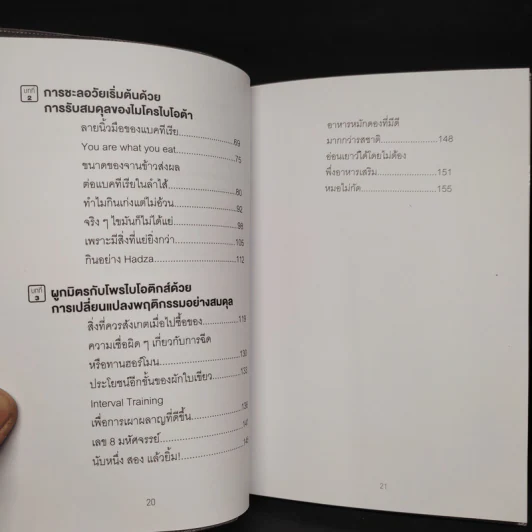 บทที่
2
การชะลอวัยเริ่มต้นด้วย
การรับสมดุลของไมโครไบโอต้า
ลายนิ้วมือของแบคทีเรีย 69
You are what you eat 75
ขนาดของจานข้าวส่งผล
ต่อแบคทีเรียในลำไส้ 80
ทำไมกินเก่งแต่ไม่อ้วน 92
จริง ๆ ไขมันก็ไม่ได้แย่ 98
เพราะมีสิ่งที่แย่ยิ่งกว่า 105
กินอย่าง Hadza 112
บทที่
3
ผูกมิตรกับโพรไบโอติกส์ด้วย
การเปลี่ยนแปลงพฤติกรรมอย่างสมดุล
สิ่งที่ควรสังเกตเมื่อไปซื้อของ 119
ความเชื่อผิด ๆ เกี่ยวกับการฉีด
หรือทานฮอร์โมน 130
ประโยชน์อีกขั้นของผักใบเขียว 133
Interval Training
เพื่อการเผาผลาญที่ดีขึ้น
เลข 8 มหัศจรรย์
นับหนึ่ง สอง แล้วยิ้ม!
20
อาหารหมักดองที่มีดี
มากกว่ารสชาติ 148
อ่อนเยาว์ได้โดยไม่ต้อง
พึ่งอาหารเสริม 151
หมอไม่กัด 155
21